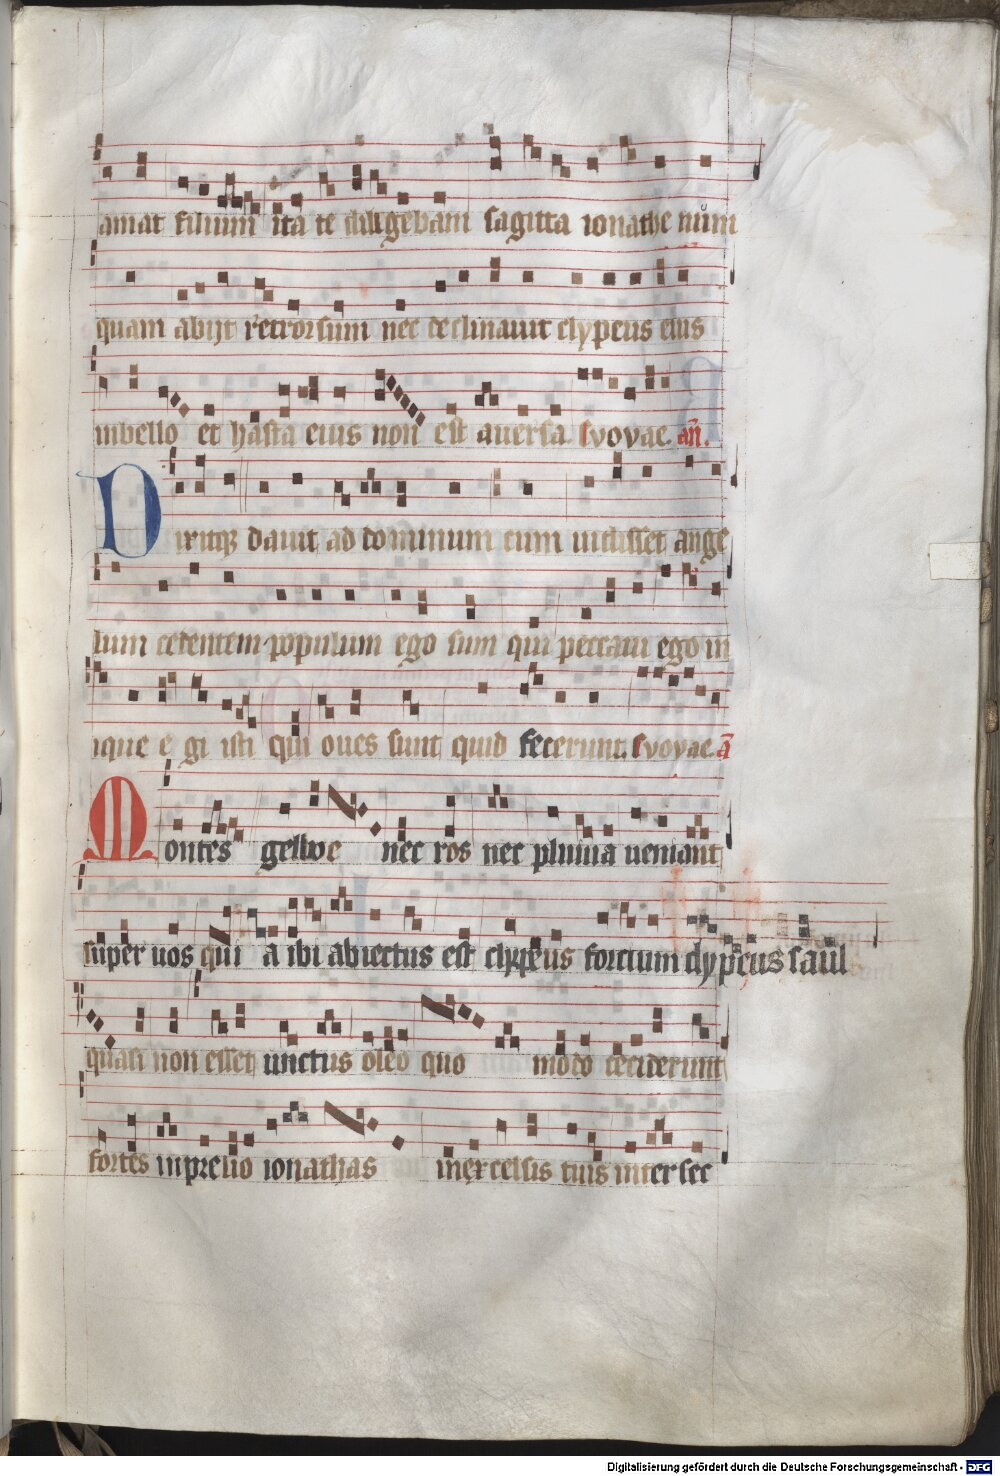 amat filium ita te diligebam sagitta ionathe nům
quam abijt retrorsum nec declinauit clypeus eius
inbello et hasta eius non est auersa svovae. añ.
Dixitqꝫ dauit ad dominum cum uidisset ange
lum cedentem populum ego sum qui peccaui ego in
ique e gi isti qui oues sunt quid fecerunt. svovae. a̅
Montes gelboe nec ros nec pluuia ueniant
super uos qui a ibi abiectus est clypeus forcium clypeus saul
quasi non esset unctus oleo quo modo ceciderunt
fortes inprelio ionathas inexcelsis tuis interfec
Digitalisierung gefördert durch die Deutsche Forschungsgemeinschaft - DFG